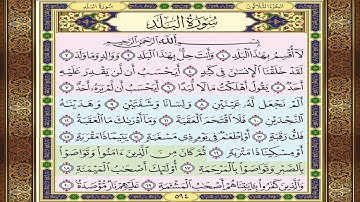 الجزء الثلاثون
سورة البلد
سُورَةُ البَلَدِ
بِسْمِ اللَّهِ الرَّحْمَٰنِ الرَّحِيمِ
لَا أُقْسِمُ بِهَٰذَا الْبَلَدِ ١ وَأَنتَ حِلٌّ بِهَٰذَا الْبَلَدِ ٢ وَوَالِدٍ وَمَا وَلَدَ ٣
لَقَدْ خَلَقْنَا الْإِنسَانَ فِي كَبَدٍ ٤ أَيَحْسَبُ أَن لَّن يَقْدِرَ عَلَيْهِ
أَحَدٌ ٥ يَقُولُ أَهْلَكْتُ مَالًا لُّبَدًا ٦ أَيَحْسَبُ أَن لَّمْ يَرَهُ أَحَدٌ ٧
أَلَمْ نَجْعَل لَّهُ عَيْنَيْنِ ٨ وَلِسَانًا وَشَفَتَيْنِ ٩ وَهَدَيْنَاهُ
النَّجْدَيْنِ ١٠ فَلَا اقْتَحَمَ الْعَقَبَةَ ١١ وَمَا أَدْرَاكَ مَا الْعَقَبَةُ ١٢
فَكُّ رَقَبَةٍ ١٣ أَوْ إِطْعَامٌ فِي يَوْمٍ ذِي مَسْغَبَةٍ ١٤ يَتِيمًا ذَا مَقْرَبَةٍ ١٥
أَوْ مِسْكِينًا ذَا مَتْرَبَةٍ ١٦ ثُمَّ كَانَ مِنَ الَّذِينَ آمَنُوا وَتَوَاصَوْا
بِالصَّبْرِ وَتَوَاصَوْا بِالْمَرْحَمَةِ ١٧ أُولَٰئِكَ أَصْحَابُ الْمَيْمَنَةِ ١٨
وَالَّذِينَ كَفَرُوا بِآيَاتِنَا هُمْ أَصْحَابُ الْمَشْأَمَةِ ١٩ عَلَيْهِمْ نَارٌ مُّؤْصَدَةٌ ٢٠
٥٩٤